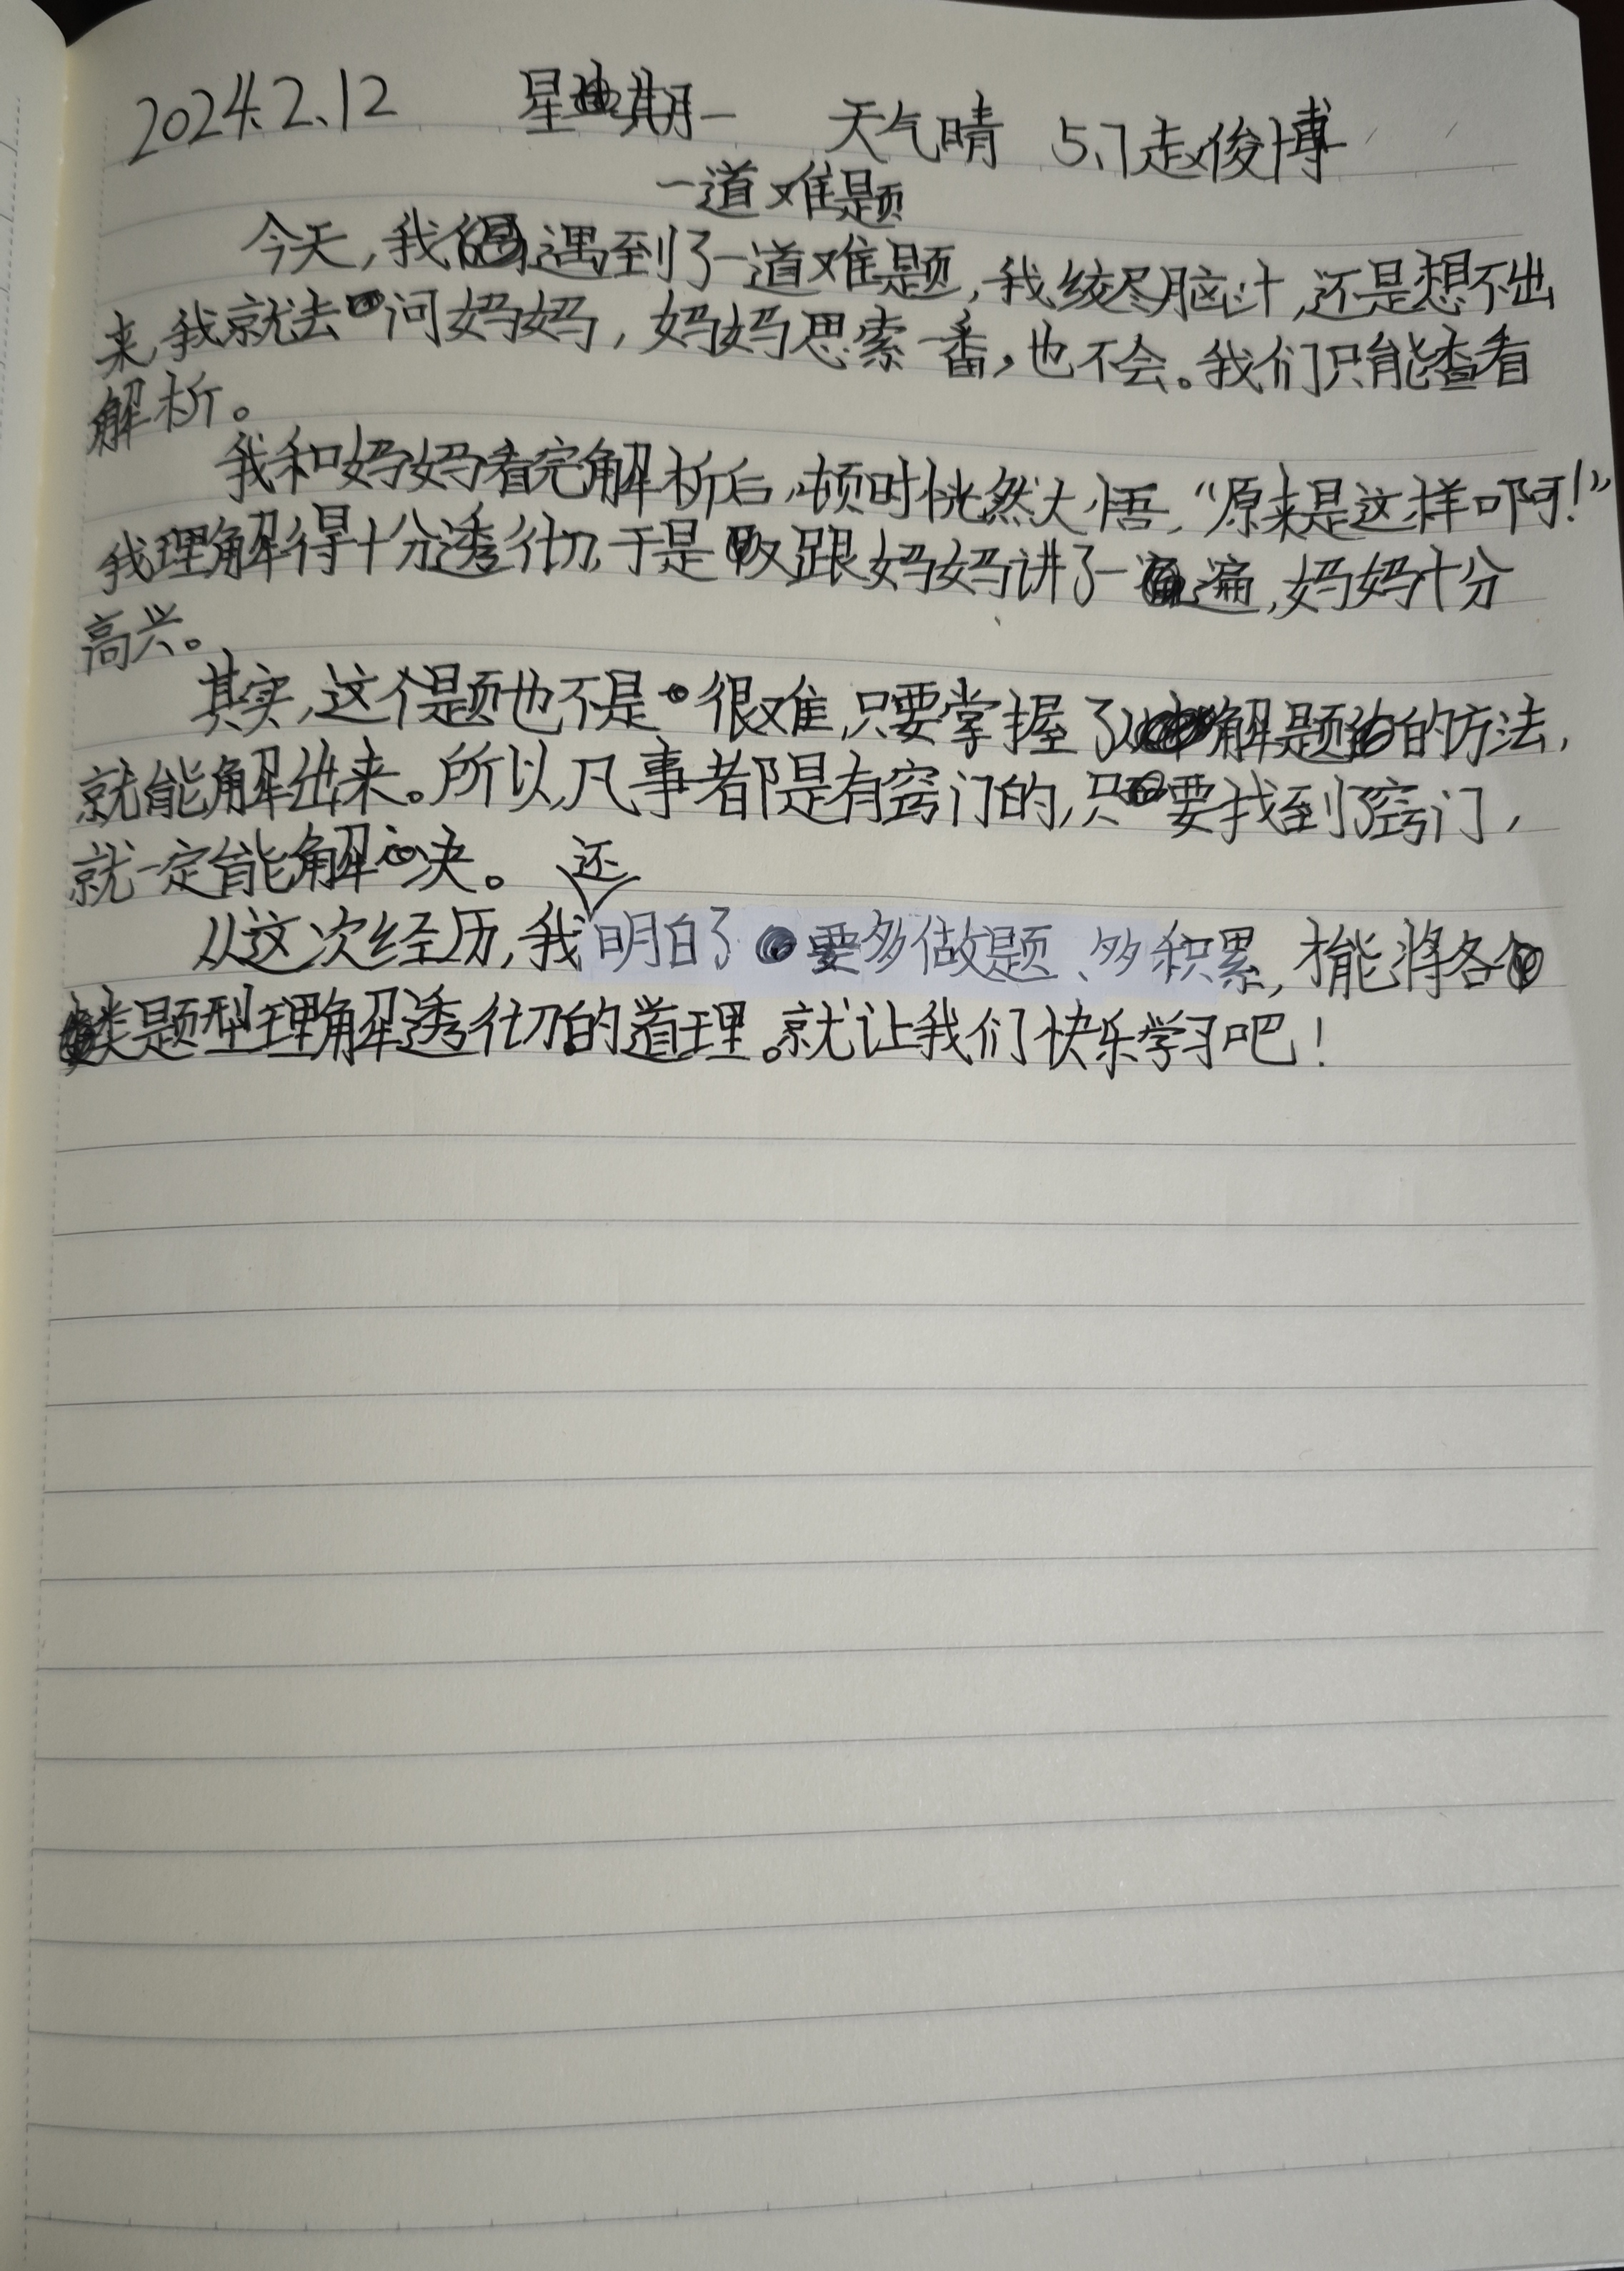 2024.2.12 星期一 天气晴 5.7赵俊博
一道难题
今天,我遇到了一道难题,我绞尽脑汁,还是想不出
来,我就去问妈妈,妈妈思索一番,也不会。我们只能查看
解析。
我和妈妈看完解析后,顿时恍然大悟,“原来是这样啊!”
我理解得十分透彻,于是跟妈妈讲了一遍,妈妈十分
高兴。
其实,这个题也不是很难,只要掌握了解题的方法,
就能解出来。所以,凡事都是有窍门的,只要找到了窍门,
就一定能解决。
从这次经历,我还明白了要多做题、多积累,才能将各
类题型理解透彻的道理。就让我们快乐学习吧!